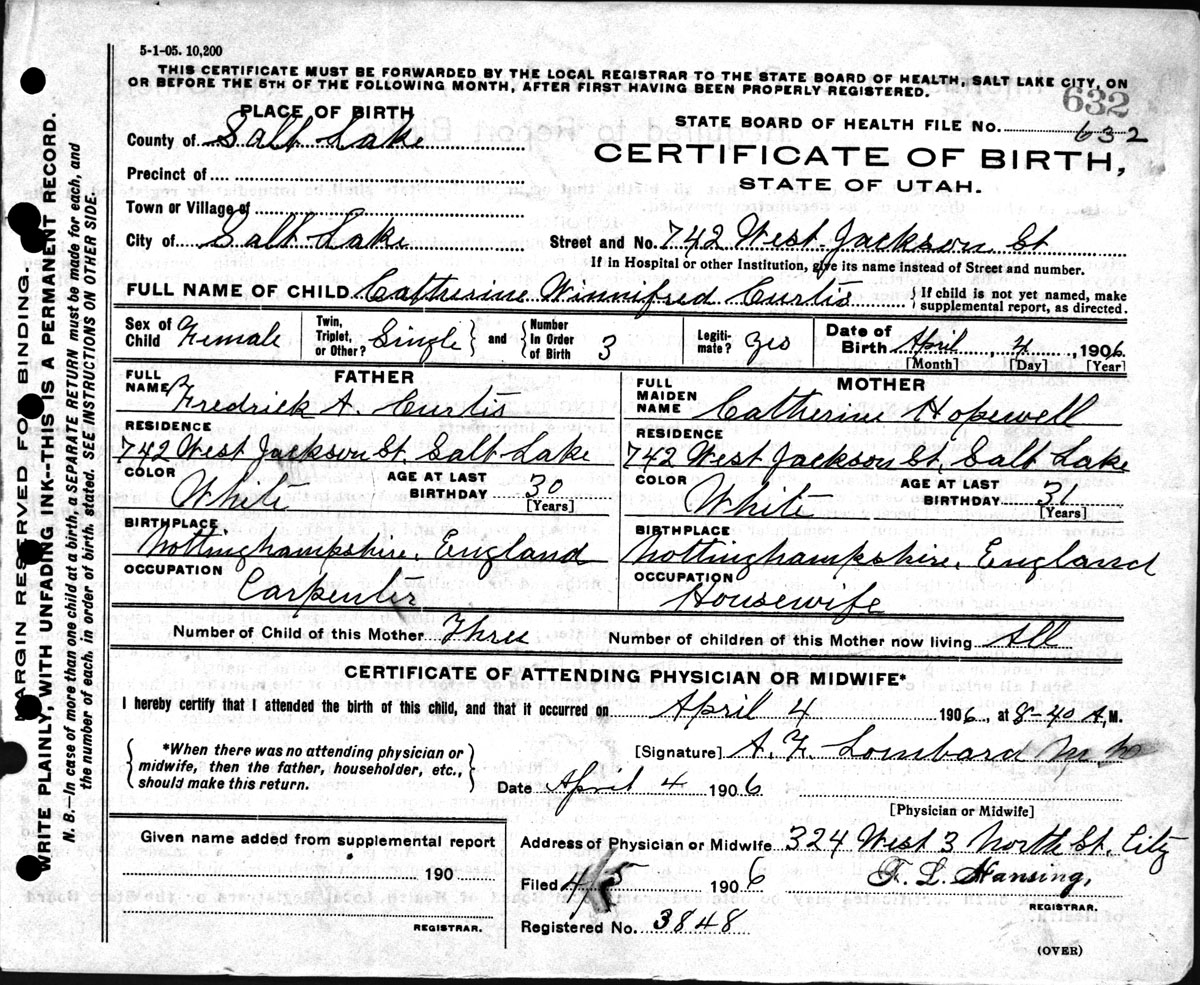 5-1-05. 10,200
THIS CERTIFICATE MUST BE FORWARDED BY THE LOCAL REGISTRAR TO THE STATE BOARD OF HEALTH, SALT LAKE CITY, ON
OR BEFORE THE 5TH OF THE FOLLOWING MONTH, AFTER FIRST HAVING BEEN PROPERLY REGISTERED.
632
PLACE OF BIRTH
County of Salt Lake
Precinct of
Town or Village of
City of Salt Lake
STATE BOARD OF HEALTH FILE No. 632
CERTIFICATE OF BIRTH,
STATE OF UTAH.
Street and No. 742 West Jackson St
If in Hospital or other Institution, give its name instead of Street and number.
FULL NAME OF CHILD Catherine Winnifred Curtis
If child is not yet named, make
supplemental report, as directed.
Sex of Child Female
Twin, Triplet, or Other? Single and Number In Order of Birth 3
Legiti-mate? Yes
Date of Birth April 4, 1906
[Month] [Day] [Year]
FATHER
FULL NAME Fredrick A. Curtis
RESIDENCE
742 West Jackson St, Salt Lake
COLOR White
AGE AT LAST BIRTHDAY 30
[Years]
BIRTHPLACE
Nottinghampshire, England
OCCUPATION
Carpenter
MOTHER
FULL MAIDEN NAME Catherine Hopewell
RESIDENCE
742 West Jackson St, Salt Lake
COLOR White
AGE AT LAST BIRTHDAY 31
[Years]
BIRTHPLACE
Nottinghampshire, England
OCCUPATION
Housewife
Number of Child of this Mother Three
Number of children of this Mother now living All
CERTIFICATE OF ATTENDING PHYSICIAN OR MIDWIFE*
I hereby certify that I attended the birth of this child, and that it occurred on April 4 1906, at 8-40 A.M.
*When there was no attending physician or
midwife, then the father, householder, etc.,
should make this return.
[Signature] A. F. Lombard M.D
Date April 4 1906
[Physician or Midwife]
Given name added from supplemental report
190
REGISTRAR.
Address of Physician or Midwife 324 West 3 North St. City
Filed 4/5 1906
F. L. Hansing,
REGISTRAR.
Registered No. 3848
(OVER)
MARGIN RESERVED FOR BINDING.
WRITE PLAINLY, WITH UNFADING INK--THIS IS A PERMANENT RECORD.
N. B.—In case of more than one child at a birth, a SEPARATE RETURN must be made for each, and
the number of each, in order of birth, stated. SEE INSTRUCTIONS ON OTHER SIDE.